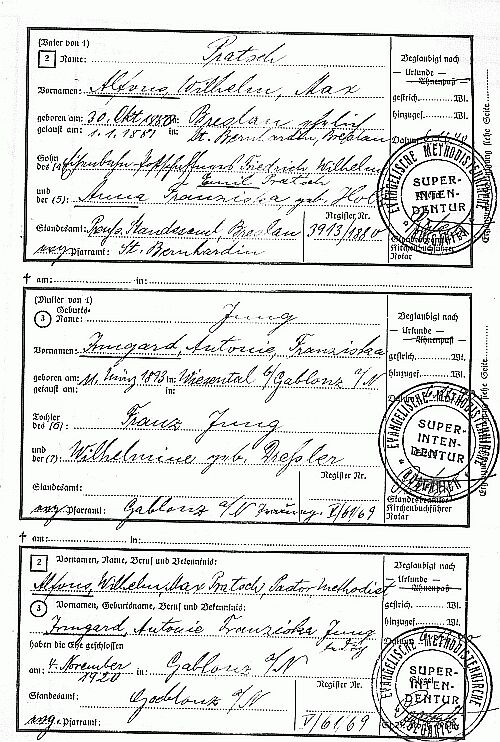 (Vater von 1)
2 Name: Pratsch
Vornamen: Alfons, Wilhelm, Max
geboren am: 30. Okt. 1880 in: Breslau
getauft am: 1.1.1881 in: St. Bernhardin, Breslau
Sohn des (4): Friedrich Wilhelm
Emil Pratsch
und der (5): Anna Franziska geb.
Register Nr.
Standesamt: Preuß. Standesamt, Breslau 3913/1880
evg. Pfarramt: St. Bernhardin
Beglaubigt nach
— Urkunde —
— Ahnenpaß —
gestrich. Wl.
hinzugef. Wl.
Datum
EVANGELISCHE METHODISTENKIRCHE
SUPER-
INTEN-
DENTUR
Standesbeamter
Kirchenbuchführer
Notar
† am: in:
(Mutter von 1)
Geburts-
3 Name: Jung
Vornamen: Irmgard, Antonie, Franziska
geboren am: 11. März 1893 in: Wiesental b/Gablonz a/N
getauft am: in:
Tochter des (6): Franz Jung
und der (7): Wilhelmine geb. Preßler
Register Nr.
Standesamt:
evg. Pfarramt: Gablonz a/N Trauung. V/61/69
Beglaubigt nach
— Urkunde —
— Ahnenpaß —
gestrich. Wl.
hinzugef. Wl.
EVANGELISCHE METHODISTENKIRCHE
SUPER-
INTEN-
DENTUR
Standesbeamter
Kirchenbuchführer
Notar
† am: in:
2 Vornamen, Name, Beruf und Bekenntnis:
Alfons, Wilhelm, Max Pratsch, Pastor Methodist
3 Vornamen, Geburtsname, Beruf und Bekenntnis:
Irmgard, Antonie Franziska Jung
haben die Ehe geschlossen
am: 4. November 1920 in: Gablonz a/N
Register Nr.
Standesamt: Gablonz a/N
evg. Pfarramt: V/61/69
Beglaubigt nach
— Urkunde —
— Ahnenpaß —
gestrich. Wl.
hinzugef. Wl.
Datum
EVANGELISCHE METHODISTENKIRCHE
SUPER-
INTEN-
DENTUR